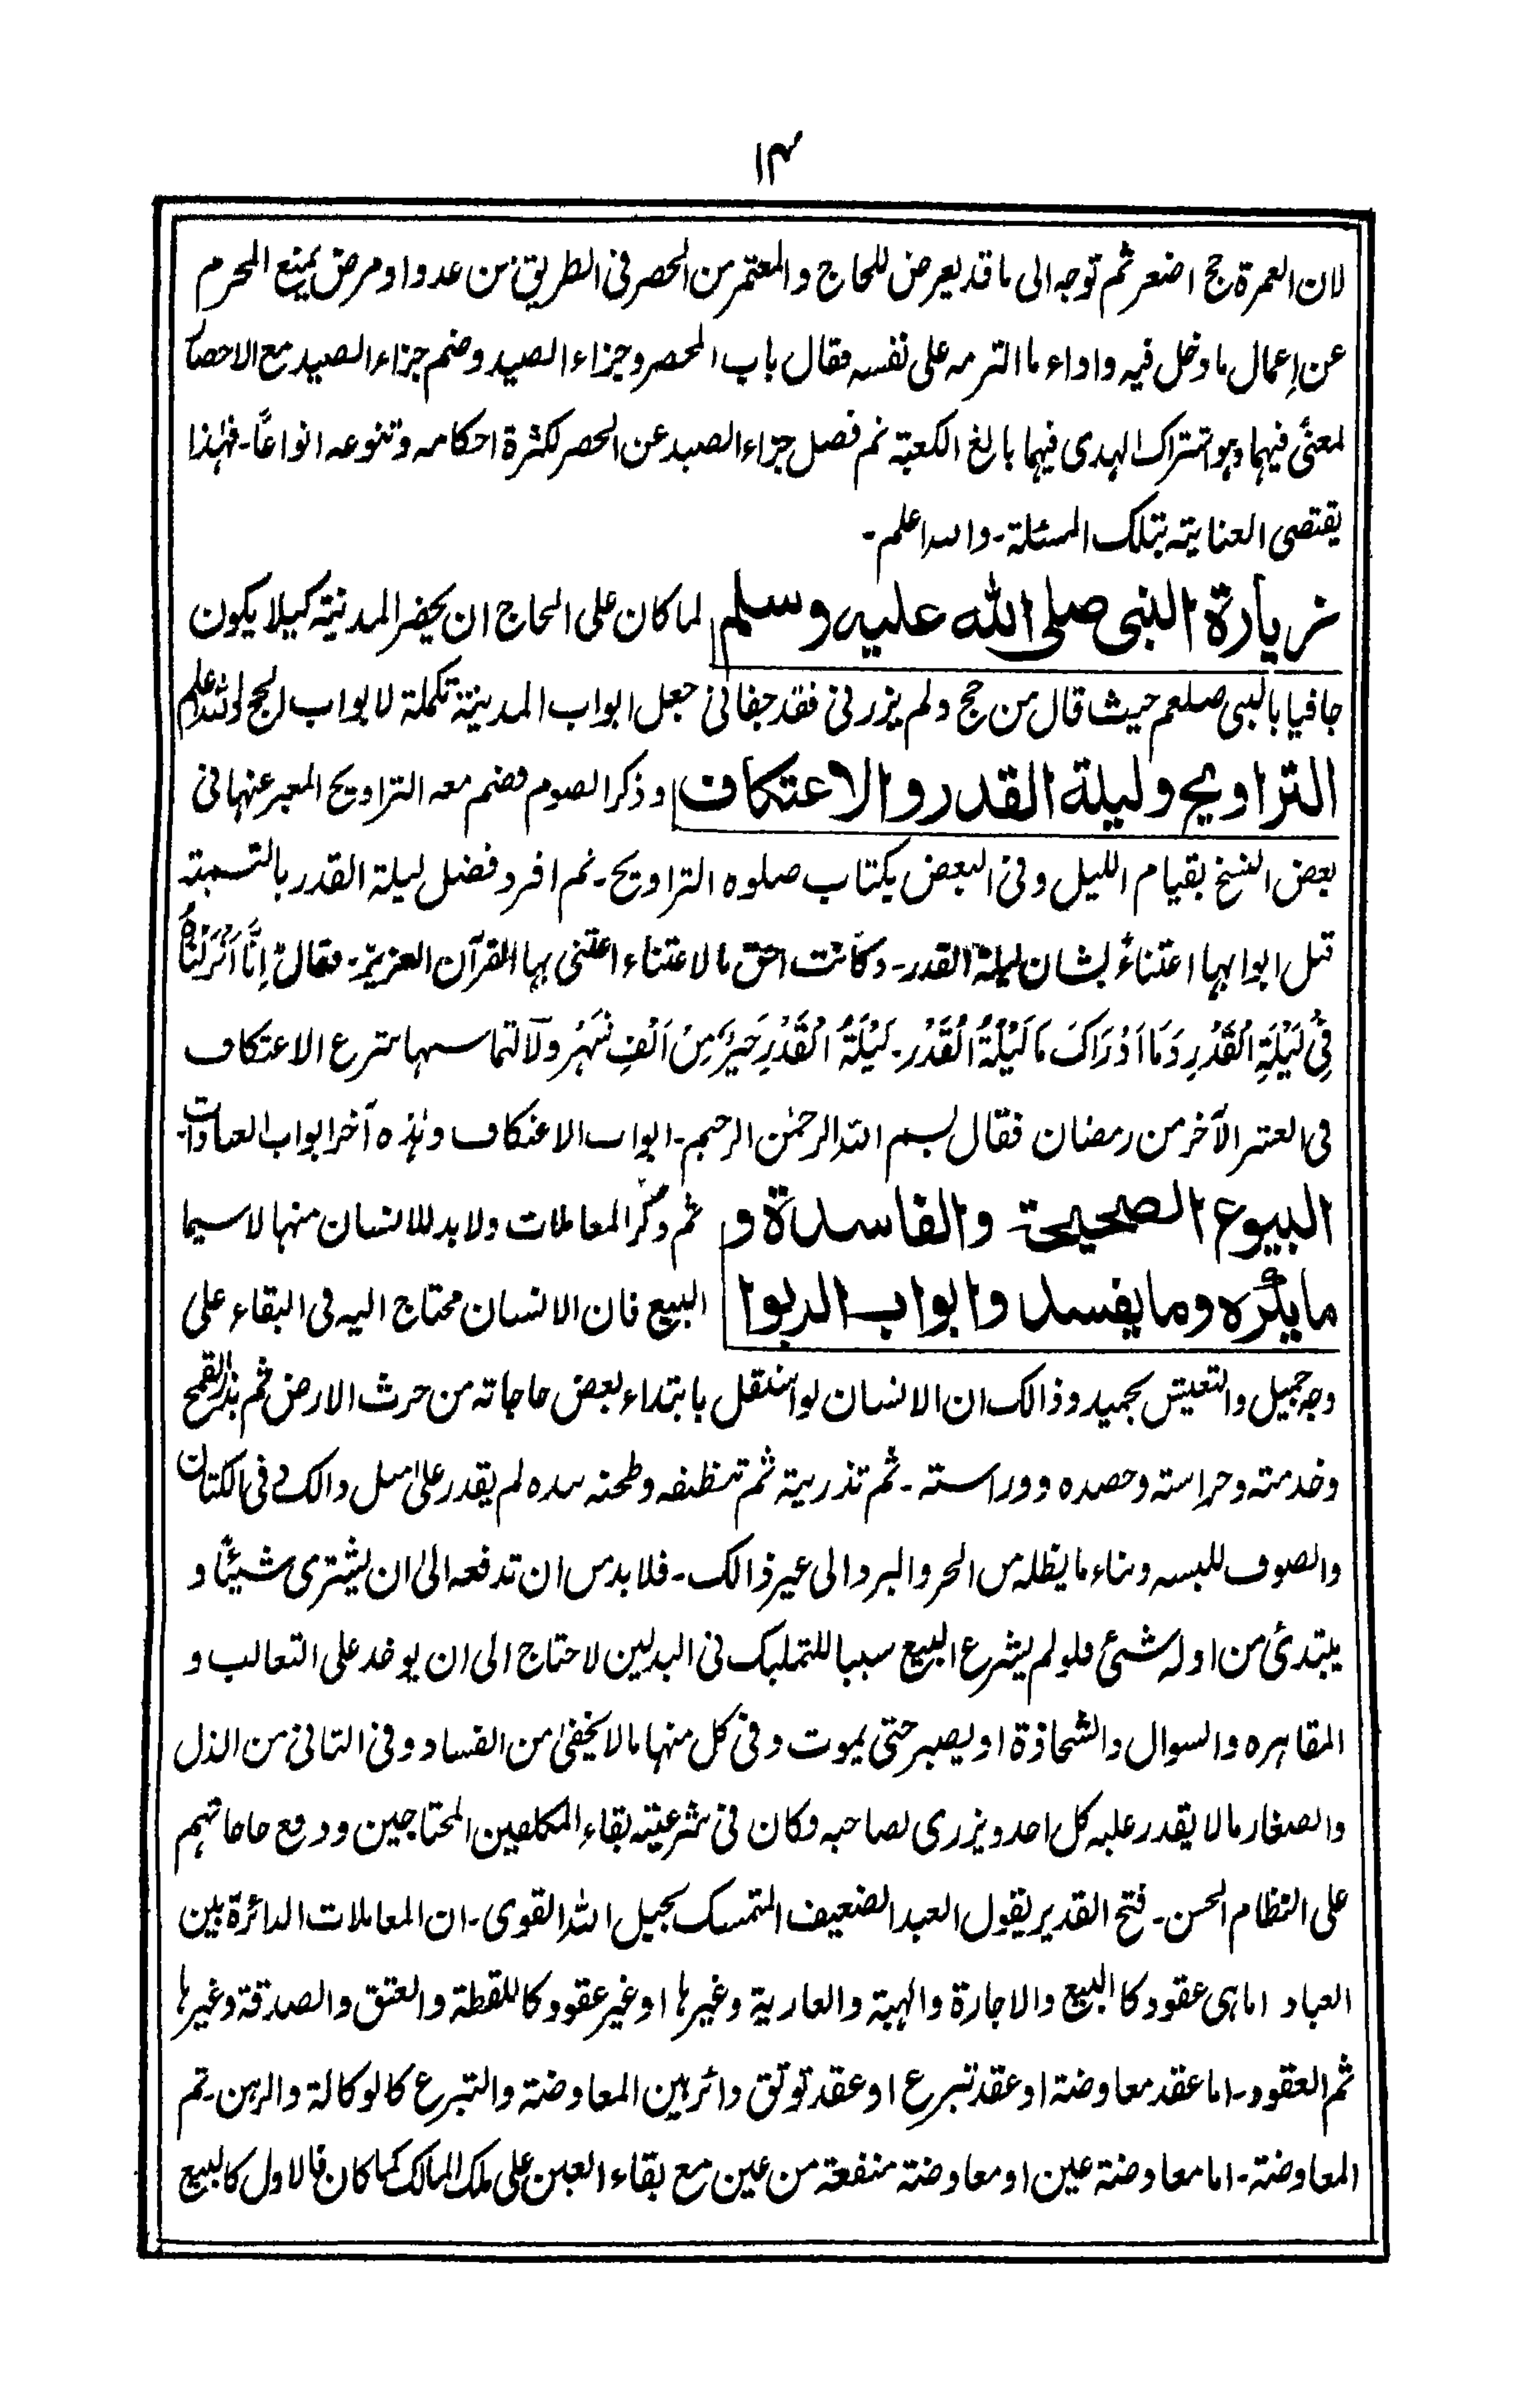 ۱۴
لان العمرة حج اضعر ثم توجه الى ما قد يعرض للحاج والمعتمر من الحصر فى الطريق من عدو او مرض يمنع المحرم
عن اعمال ما دخل فيه واداء ما التزمه على نفسه فقال باب المحصر وجزاء الصيد وضم جزاء الصيد مع الاحصار
لمعنًى فيهما وہو اشتراک الہدى فيہما بالغ الكعبة ثم فصل جزاء الصيد عن الحصر لكثرة احكامہ وتنوعه انواعًا۔ فہٰذا
يقتضى العناية بتلک المسئلة۔ والله اعلم۔
زيارة النبى صلى الله عليه وسلم لما كان على الحاج ان يحضر المدنية كيلا يكون
جافيا بالنبى صلعم حيث قال من حج ولم يزرنى فقد جفانى جعل ابواب المدينة تكملة لابواب الحج والله اعلم
التراويح وليلة القدر والاعتكاف وذكر الصوم فضم معه التراويح المعبر عنہا فى
بعض النسخ بقيام الليل وفى البعض بكتاب صلوه التراويح۔ ثم افرد فضل ليلة القدر بالتسمية
قبل ابوابہا اعتناءً بشان ليلة القدر۔ وكانت احق مالاعتناء اعتنى بہا القرآن العزيز۔ فقال اِنَّا اَنْزَلْنَاهُ
فِىْ لَيْلَةِ الْقَدْرِ وَمَا اَدْرَاكَ مَا لَيْلَةُ الْقَدْر۔ لَيْلَةُ الْقَدْرِ خَيْرٌ مِنْ اَلْفِ شَهْرٍ ولالتماسہا شرع الاعتكاف
فى العشر الآخر من رمضان فقال بسم الله الرحمٰن الرحيم۔ ابواب الاعتكاف وہٰذه آخر ابواب العبادات۔
البيوع الصحيحة والفاسدة و ثم ذكر المعاملات ولابد للانسان منہا لاسيما
مايكره ومايفسد وابواب الربوا البيع فان الانسان محتاج اليہ فى البقاء على
وجہ جميل والتعيش بحميد وذالک ان الانسان لو استقل بابتداء بعض حاجاته من حرث الارض ثم بذر القمح
وخدمته وحراسته وحصده ووراسته۔ ثم تذريته ثم تنظيفه وطحنه بيده لم يقدر على مثل ذالک فى الكتان
والصوف للبسه وبناء ما يظله من الحر والبرد الى غير ذالک۔ فلابد من ان تدفعه الى ان يشترى شيئًا و
يبتدئ من اوله شئ فلو لم يشرع البيع سببا للتمليك فى البدلين لاحتاج الى ان يوخد على التغالب و
المقاہره والسوال والشحاذة او يصبر حتى يموت وفى كل منہا مالا يخفىٰ من الفساد وفى الثانى من الذل
والصغار مالا يقدر عليه كل احد ويزرى لصاحبه وكان فى شرعيته بقاء المكلفين المحتاجين ودفع حاجاتہم
على النظام الحسن۔ فتح القدير يقول العبد الضعيف المتمسک بجبل الله القوى۔ ان المعاملات الدائرة بين
العباد اماہى عقود كا البيع والاجارة والہبة والعارية وغيرہا او غير عقود كاللقطة والعتق والصدقة وغيرہا
ثم العقود۔ اما عقد معاوضة او عقد تبرع او عقد توثق دائر بين المعاوضة والتبرع كالوكالة والرہن۔ ثم
المعاوضة۔ اما معاوضة عين او معاوضة منفعة من عين مع بقاء العين على ملک المالک كما كان فالاول كالبيع